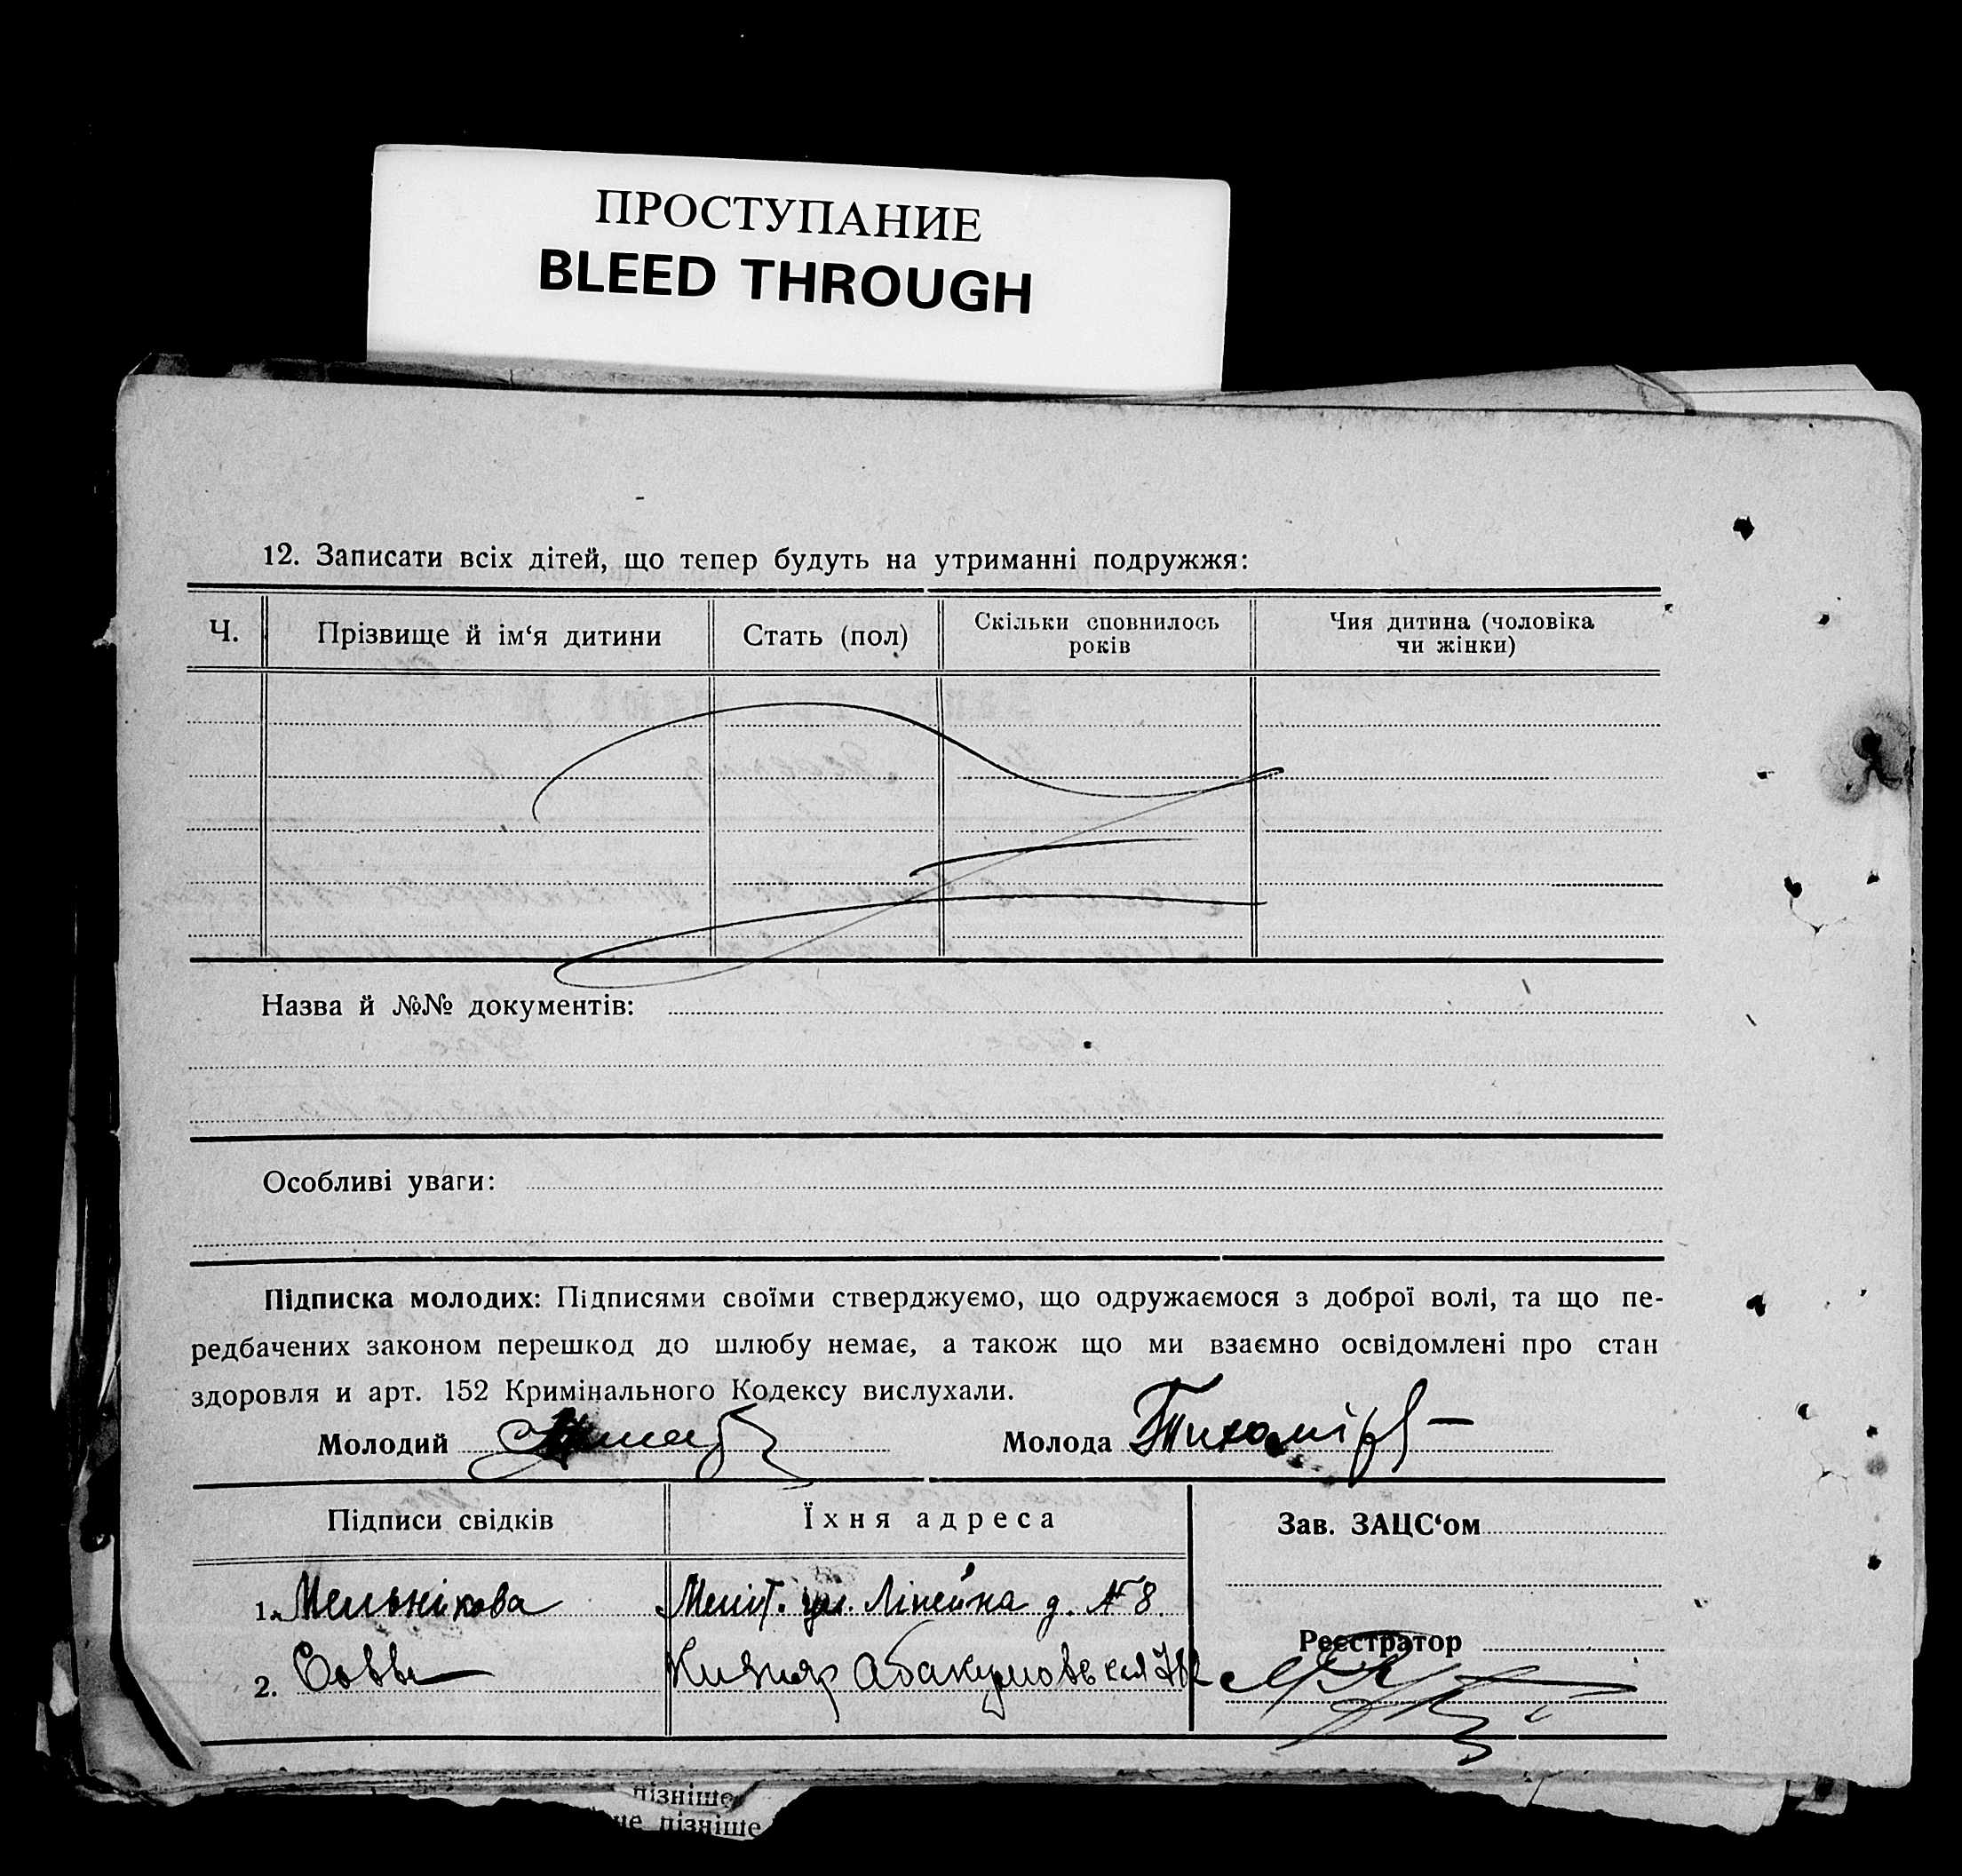 ПРОСТУПАНИЕ
BLEED THROUGH
12. Записати всіх дітей, що тепер будуть на утриманні подружжя:
Ч. Прізвище й ім‘я дитини Стать (пол) Скільки сповнилось років Чия дитина (чоловіка чи жінки)
Назва й №№ документів:
Особливі уваги:
Підписка молодих: Підписями своїми стверджуємо, що одружаємося з доброї волі, та що пе-
редбачених законом перешкод до шлюбу немає, а також що ми взаємно освідомлені про стан
здоровля и арт. 152 Кримінального Кодексу вислухали.
Молодий Молода
Підписи свідків Їхня адреса Зав. ЗАЦС‘ом
1. Мельнікова Меліт. ул. Лінейна д. № 8
Реєстратор
2.
пізніше
не пізніше